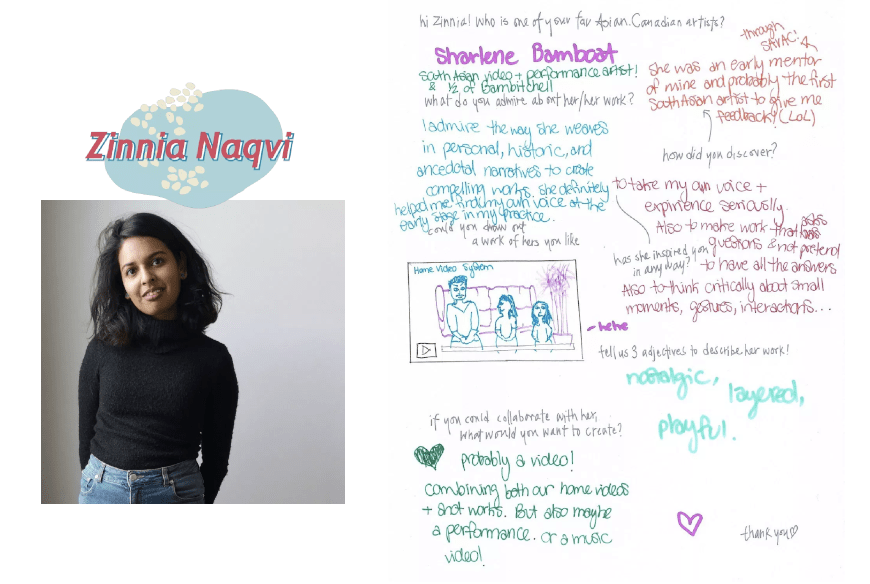 Zinnia Naqvi
hi Zinnia! who is one of your fav Asian.Canadian artists?
Sharlene Bamboat
South Asian video + performance artist!
& 1/2 of Bambitchell
what do you admire about her/her work?
I admire the way she weaves
in personal, historic, and
anecdotal narratives to create
compelling works. She definitely
helped me find my own voice at the
early stage in my practice.
through
SAVAC!
She was an early mentor
of mine and probably the first
South Asian artist to give me
feedback! (LOL)
how did you discover?
to take my own voice +
expirience seriously.
Also to make work that asks
questions & not pretend
to have all the answers
Also to think critically about small
moments, gestures, interactions...
has she inspired you
in any way?
could you draw out
a work of hers you like
Home Video System
- hehe
tell us 3 adjectives to describe her work!
nostalgic,
layered,
playful.
if you could collaborate with her,
what would you want to create?
probably a video!
combining both our home videos
+ shot works. But also maybe
a performance. Or a music
video!
thank you